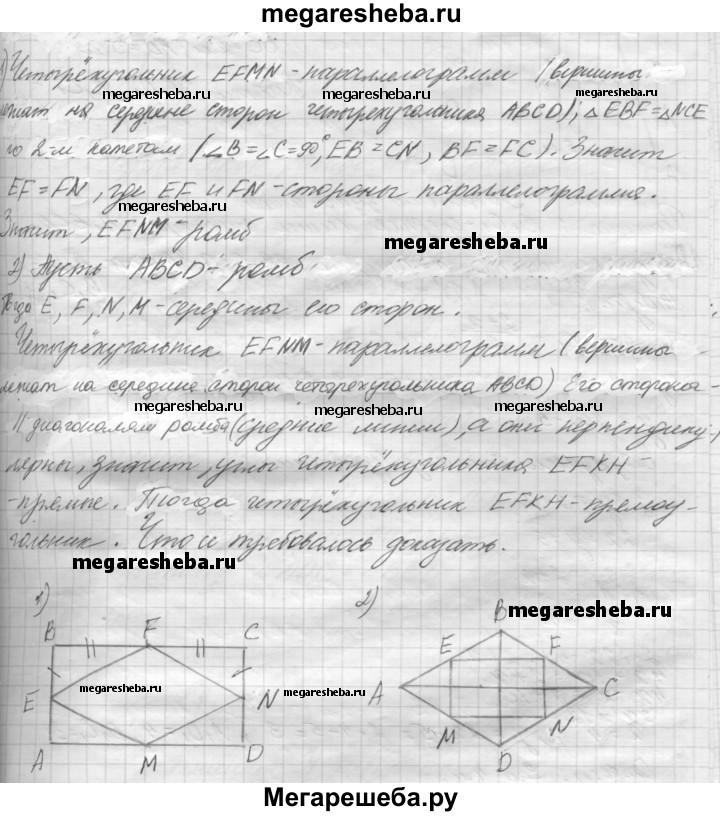 megaresheba.ru
1) Четырёхугольник EFMN - параллелограмм (вершины
megaresheba.ru megaresheba.ru
лежат на середине сторон четырехугольника ABCD); △EBF=△NCE
по 2-м катетам (∠B=∠C=90°, EB=CN, BF=FC). Значит
EF=FN, где EF и FN - стороны параллелограмма.
megaresheba.ru
Значит, EFNM - ромб
megaresheba.ru
2) Пусть ABCD - ромб.
Тогда E, F, N, M - середины его сторон.
Четырёхугольник EFNM - параллелограмм (вершины
лежат на середине сторон четырехугольника ABCD) Его стороны -
megaresheba.ru megaresheba.ru megaresheba.ru
|| диагоналям ромба (средние линии), а они перпендику-
лярны, значит, углы четырёхугольника EFKH -
- прямые. Тогда четырёхугольник EFKH - прямоу-
гольник. Что и требовалось доказать.
megaresheba.ru
1) 2)
megaresheba.ru
B F C
B
E F
megaresheba.ru megaresheba.ru
E N
A C
M N
A M D
D
Мегарешеба.ру